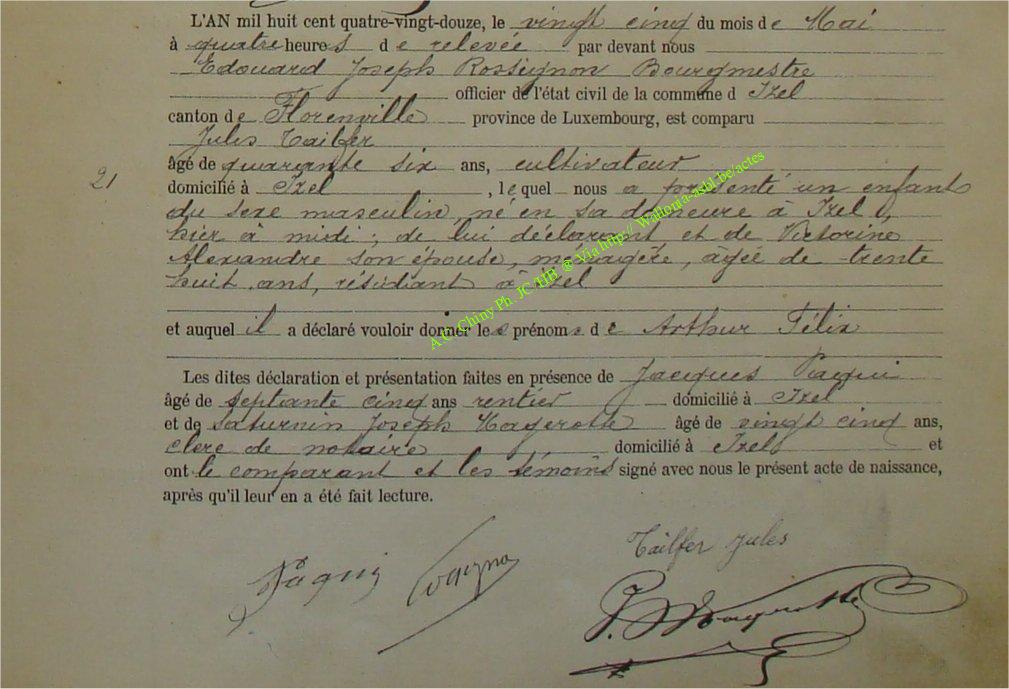 L'AN mil huit cent quatre-vingt-douze, le vingt cinq du mois de Mai
à quatre heures de relevée par devant nous
Edouard Joseph Rossignon Bourgmestre
officier de l'état civil de la commune d Izel
canton de Florenville province de Luxembourg, est comparu
Jules Tailfer
âgé de quarante six ans, cultivateur
21
domicilié à Izel, lequel nous a présenté un enfant
du sexe masculin, né en sa demeure à Izel,
hier à midi, de lui déclarant et de Victorine
Alexandre son épouse, ménagère, âgée de trente
huit ans, résidant à Izel
et auquel il a déclaré vouloir donner les prénoms de Arthur Félix
Les dites déclaration et présentation faites en présence de Jacques Paqui
âgé de septante cinq ans rentier domicilié à Izel
et de Saturnin Joseph Hagerotte âgé de vingt cinq ans,
clerc de notaire domicilié à Izel et
ont le comparant et les témoins signé avec nous le présent acte de naissance,
après qu'il leur en a été fait lecture.
A.C. Chiny Ph. JC HB @ Via http:// Wallonia-asbl.be/actes
Tailfer Jules
Paqui